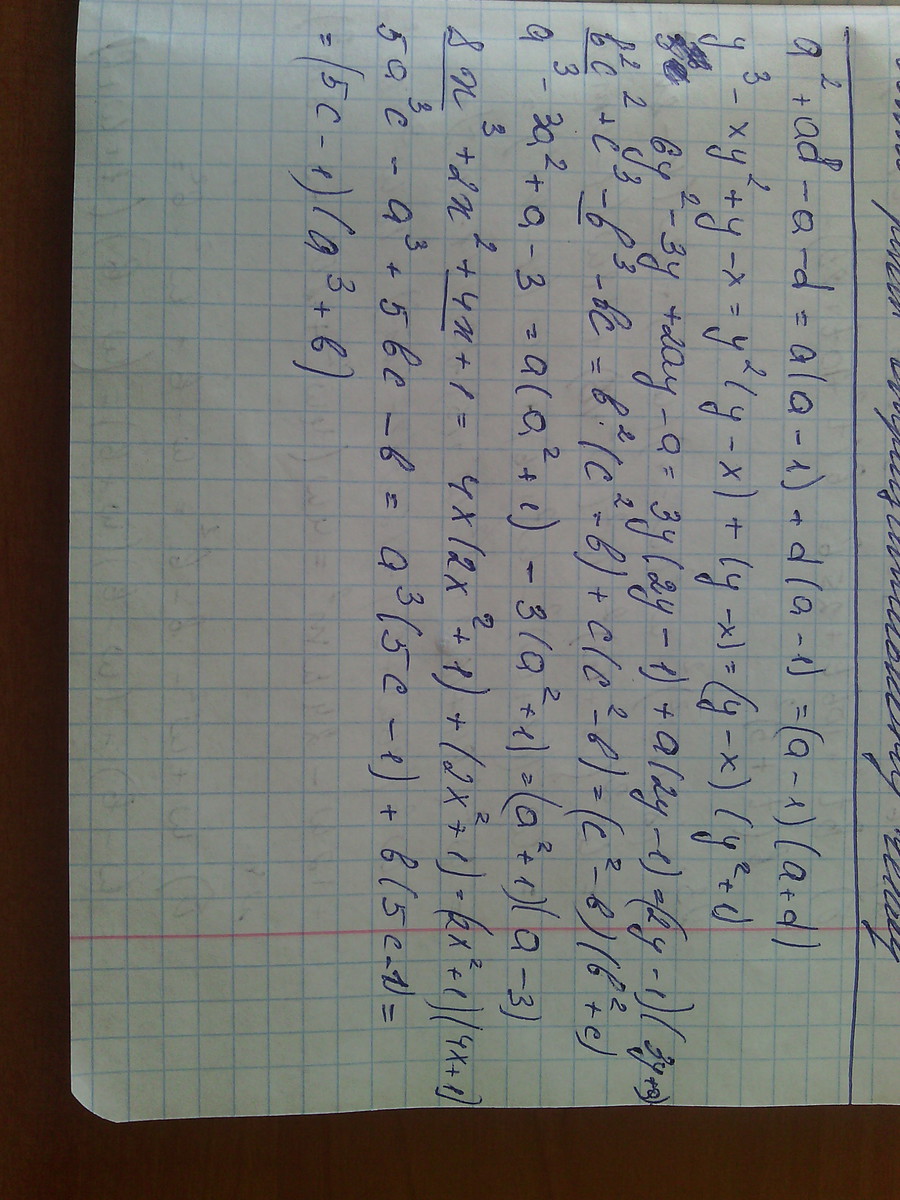 a² + ad - a - d = a(a - 1) + d(a - 1) = (a - 1)(a+d)
y³ - xy² + y - x = y²(y - x) + (y - x) = (y - x)(y²+1)
6y² - 3y + 2ay - a = 3y(2y - 1) + a(2y - 1) = (2y - 1)(3y+a)
b²c² + c³ - b³ - bc = b²·(c² - b) + c(c² - b) = (c² - b)(b² + c)
a³ - 3a² + a - 3 = a(a² + 1) - 3(a² + 1) = (a² + 1)(a - 3)
8x³ + 2x² + 4x + 1 = 4x(2x² + 1) + (2x² + 1) = (2x² + 1)(4x+1)
5a³c - a³ + 5bc - b = a³(5c - 1) + b(5c - 1) =
= (5c - 1)(a³ + b)